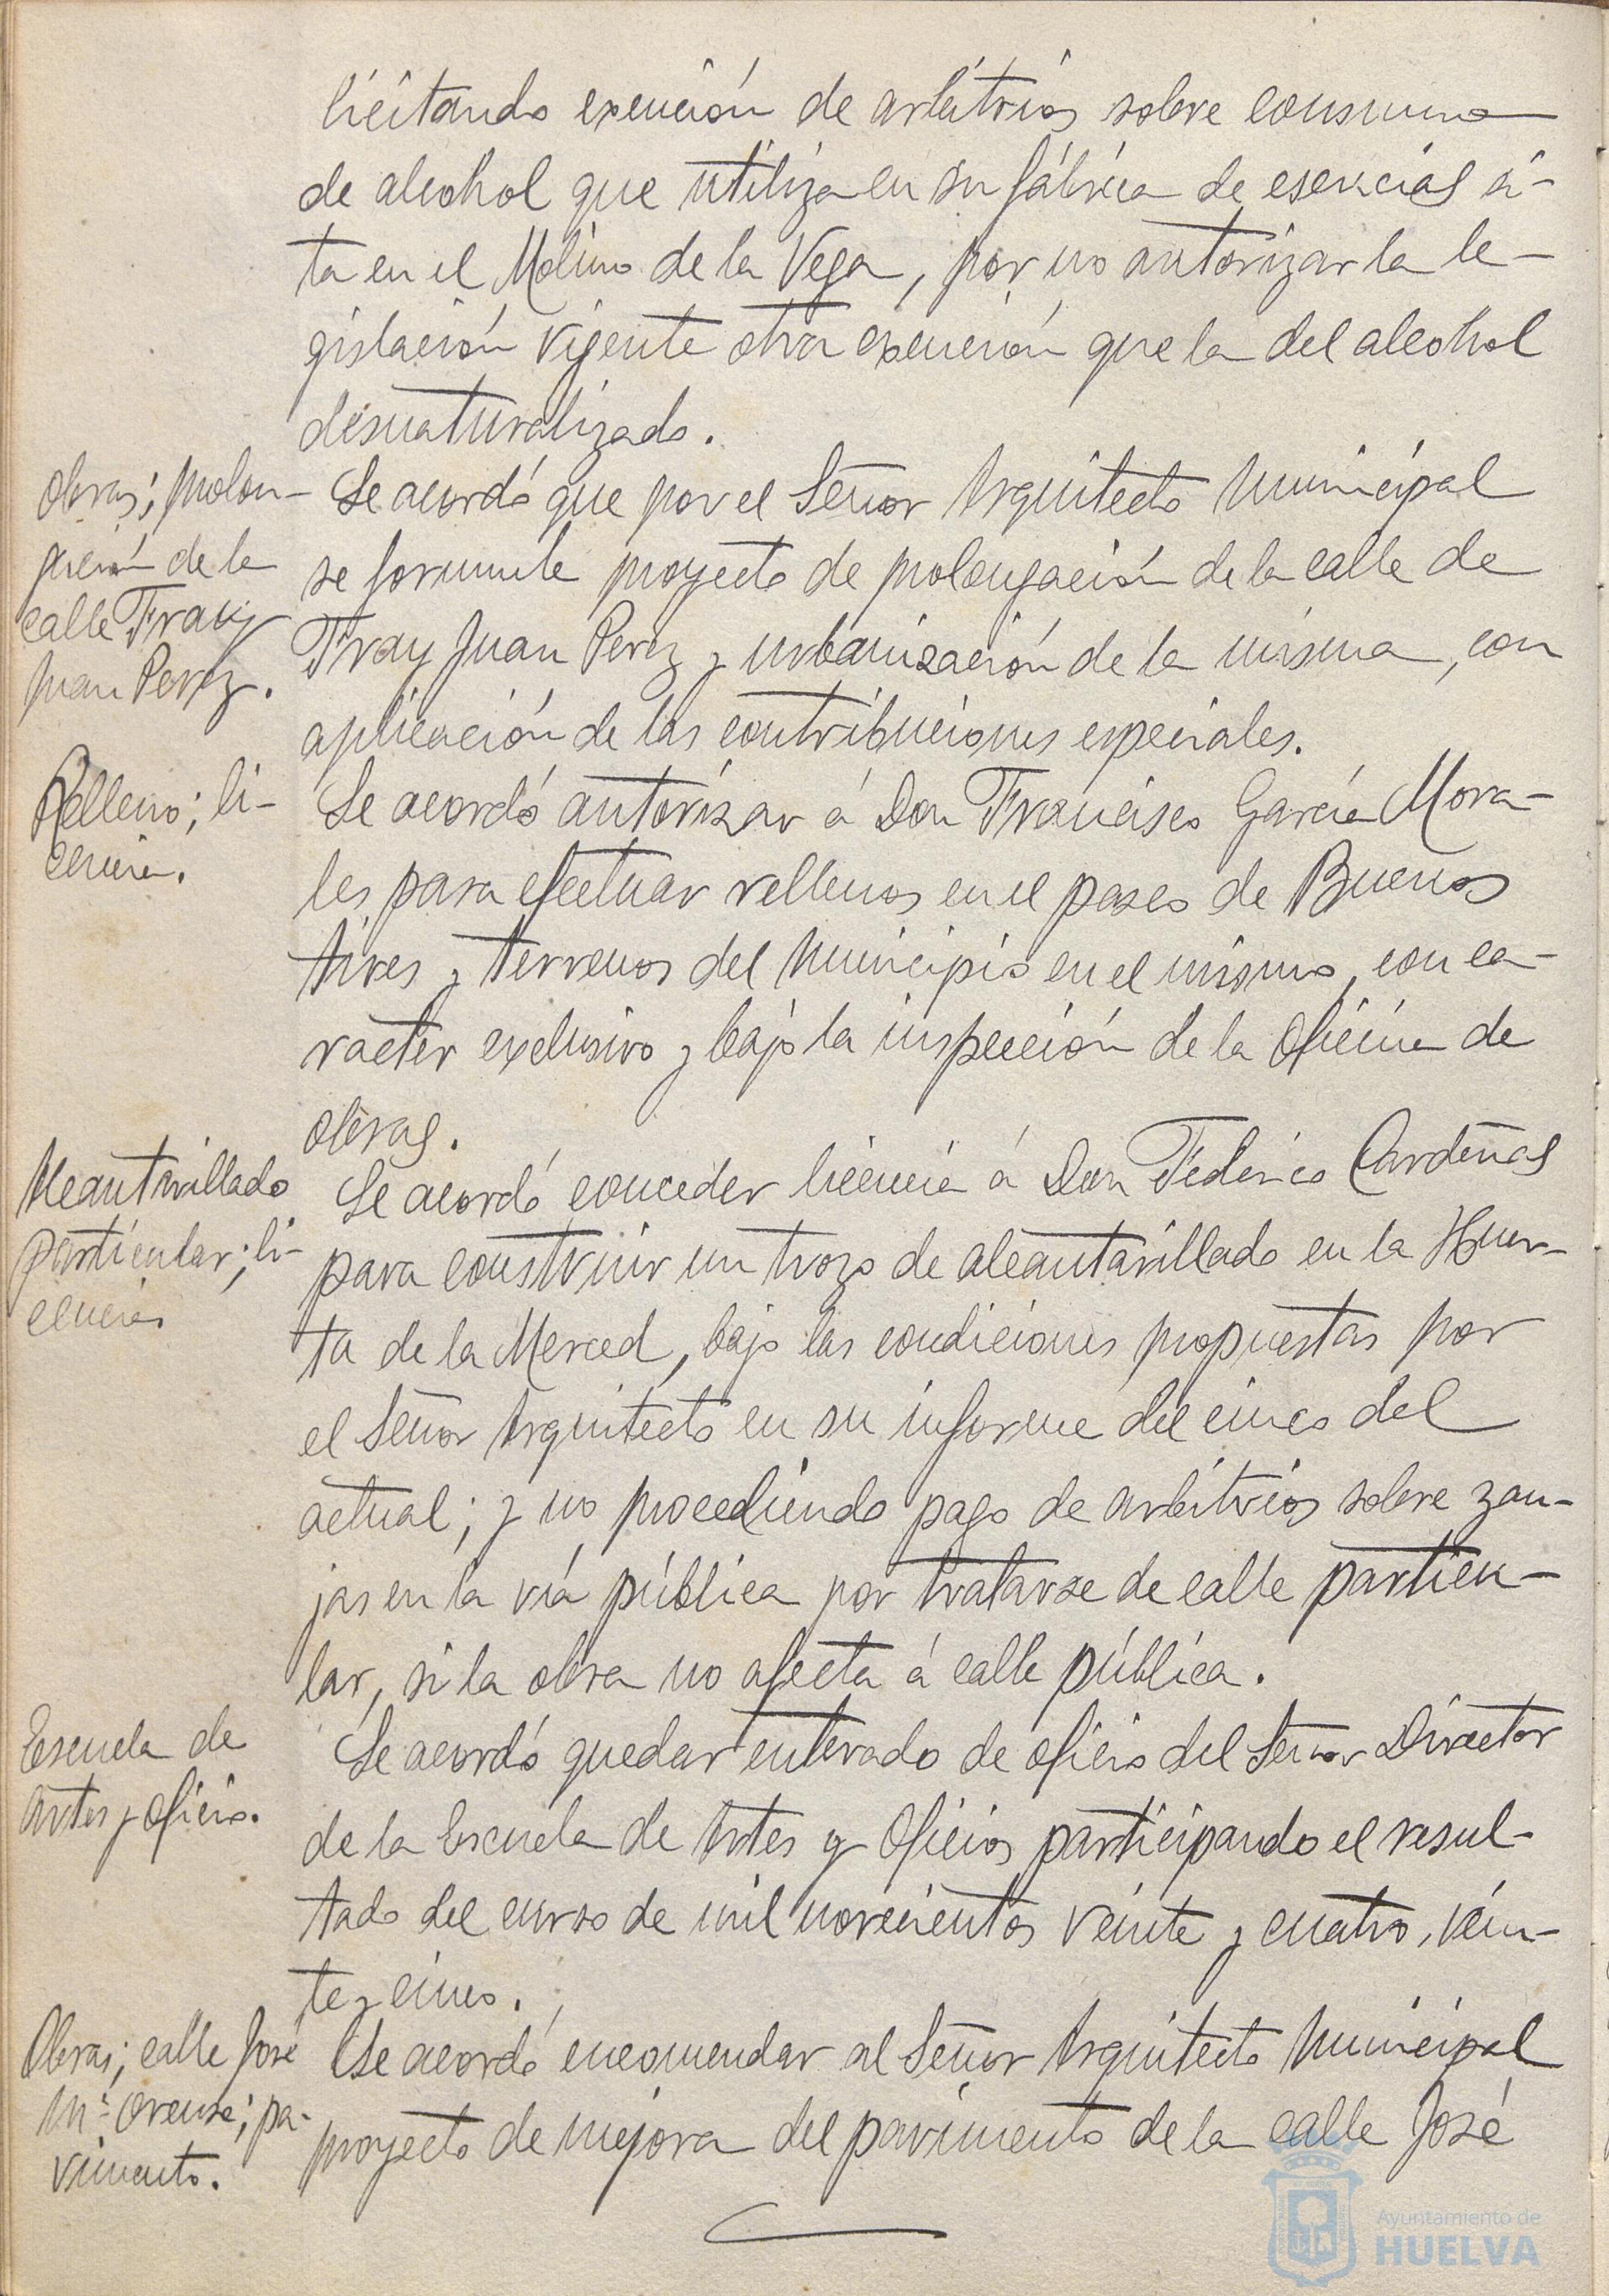 licitando exención de arbitrios sobre consumo
de alcohol que utiliza en su fábrica de esencias si-
ta en el Molino de la Vega, por no autorizar la le-
gislación vigente otra exención que la del alcohol
desnaturalizado.
Obras; prolon-
gación de la
calle Fray
Juan Perez.
Se acordó que por el Señor Arquitecto Municipal
se formule proyecto de prolongación de la calle de
Fray Juan Perez y urbanización de la misma, con
aplicación de las contribuciones especiales.
Relleno; li-
cencia.
Se acordó autorizar á Don Francisco García Mora-
les para efectuar rellenos en el paseo de Buenos
Aires y terrenos del Municipio en el mismo, con ca-
racter exclusivo y bajo la inspección de la Oficina de
obras.
Alcantarillado
particular; li-
cencia
Se acordó conceder licencia á Don Federico Cardeñas
para construir un trozo de alcantarillado en la Huer-
ta de la Merced, bajo las condiciones propuestas por
el Señor Arquitecto en su informe del cinco del
actual; y no procediendo pago de arbitrios sobre zan-
jas en la vía pública por tratarse de calle particu-
lar, si la obra no afecta á calle pública.
Escuela de
Artes y Oficio.
Se acordó quedar enterado de oficio del Señor Director
de la Escuela de Artes y Oficios participando el resul-
tado del curso de mil novecientos veinte y cuatro, vein-
te y cinco.
Obras; calle José
Mª Orense; pa-
vimento.
Se acordó encomendar al Señor Arquitecto Municipal
proyecto de mejora del pavimento de la calle José
Ayuntamiento de
HUELVA